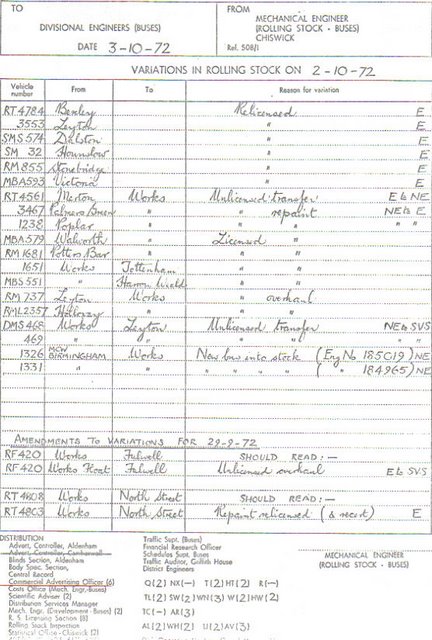 TO
FROM
DIVISIONAL ENGINEERS (BUSES)
MECHANICAL ENGINEER
(ROLLING STOCK - BUSES)
CHISWICK
DATE 3-10-72
Ref. 508/1
VARIATIONS IN ROLLING STOCK ON 2-10-72
Vehicle number From To Reason for variation
RT4784 Bexley Relicensed E
3553 Leyton " E
SMS574 Dalston " E
SM 32 Hounslow " E
RM855 Stonebridge " E
MBA593 Victoria " E
RT4561 Merton Works Unlicensed transfer E to NE
3467 Palmers Green " " repaint NE to E
1238 Poplar " " " " "
MBA579 Walworth " Licensed "
RM1681 Potters Bar " " "
1651 Works Tottenham " "
MBS551 " Harrow Weald " "
RM737 Leyton Works " overhaul
RML2357 Holloway " " "
DMS468 Works Leyton Unlicensed transfer NE to SVS
469 " " " " "
1326 MCW BIRMINGHAM Works New bus into stock (Eng No 185G19) NE
1331 " " " " " ( " 184965) NE
AMENDMENTS TO VARIATIONS FOR 29-9-72
RF420 Works Fulwell SHOULD READ:—
RF420 Works Float Fulwell Unlicensed overhaul E to SVS
RT4808 Works North Street SHOULD READ:—
RT4803 Works North Street Repaint relicensed (& recert) E
DISTRIBUTION
Advert. Controller, Aldenham
Advert. Controller, Camberwell
Blinds Section, Aldenham
Body Spec. Section,
Central Record
Commercial Advertising Officer (6)
Costs Office (Mech. Engr.-Buses)
Scientific Adviser (2)
Distribution Services Manager
Mech. Engr. (Development - Buses) (2)
R. S. Licensing Section (8)
Rolling Stock Inspection
Statistical Office - Chiswick (2)
Traffic Supt. (Buses)
Financial Research Officer
Schedules Supt. Buses
Traffic Auditor, Griffith House
District Engineers
Q(2) NX(-) T(2) HT(2) R(-)
TL(2) SW(2) WN(3) W(2) HW(2)
TC(-) AR(3)
AL(2) WH(2) U(2) AV(3)
MECHANICAL ENGINEER
(ROLLING STOCK - BUSES)